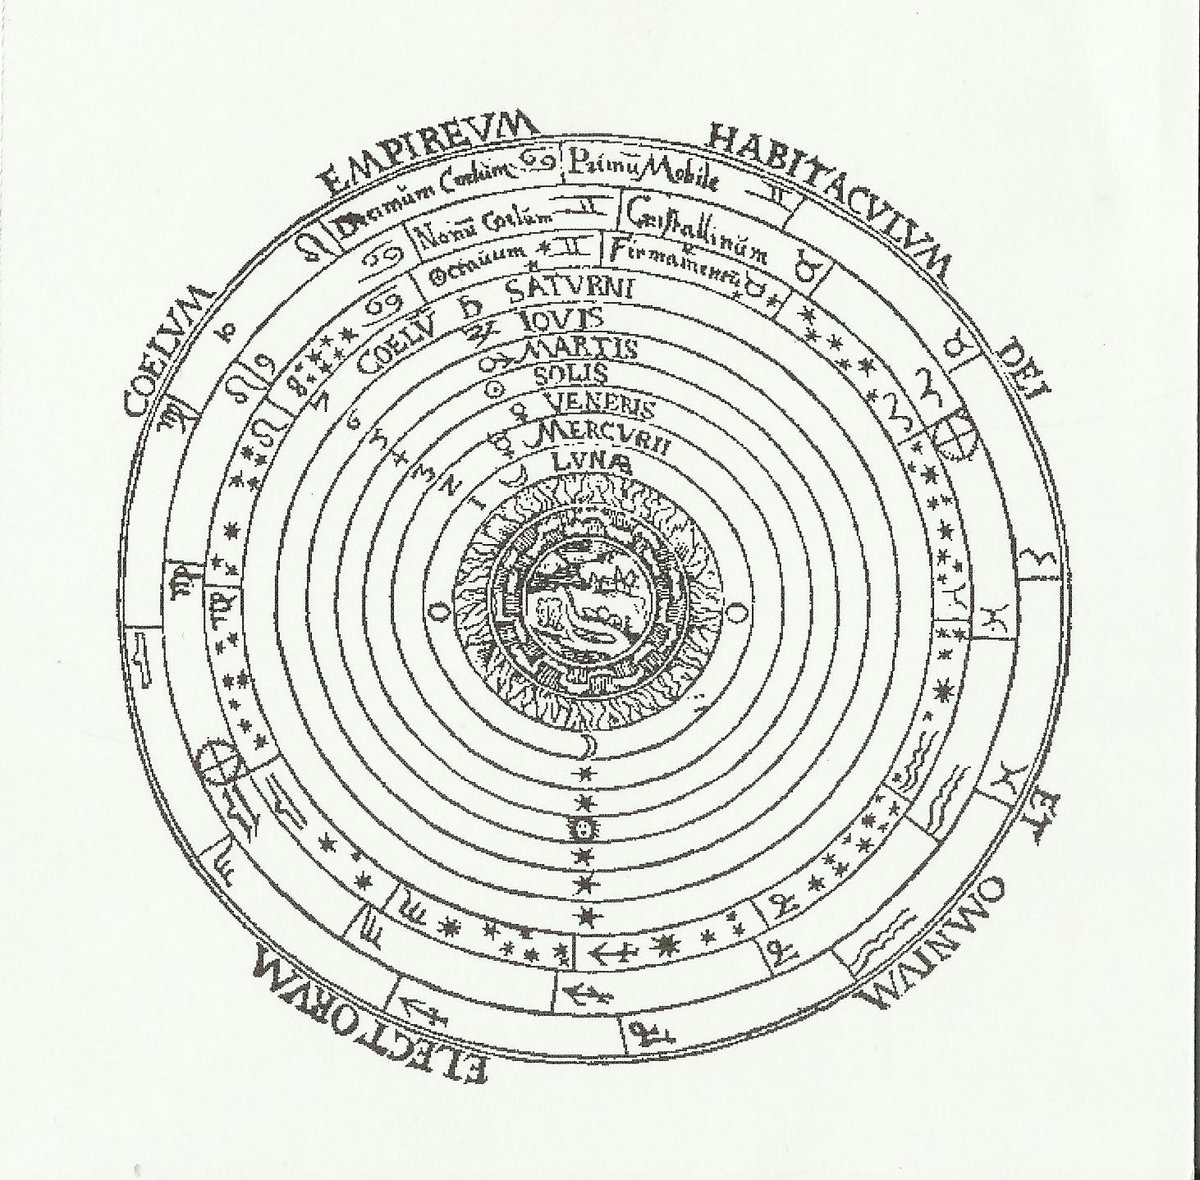 COELVM EMPIREVM HABITACVLVM DEI ET OMNIVM ELECTORVM
Decimũm Coelum Primũ Mobile
Nonũ Coelũm Cristallinũm
Octauum Firmamentũ
COELV SATVRNI
IOVIS
MARTIS
SOLIS
VENERIS
MERCVRII
LVNÆ
10
9
8
7
6
5
4
3
2
1